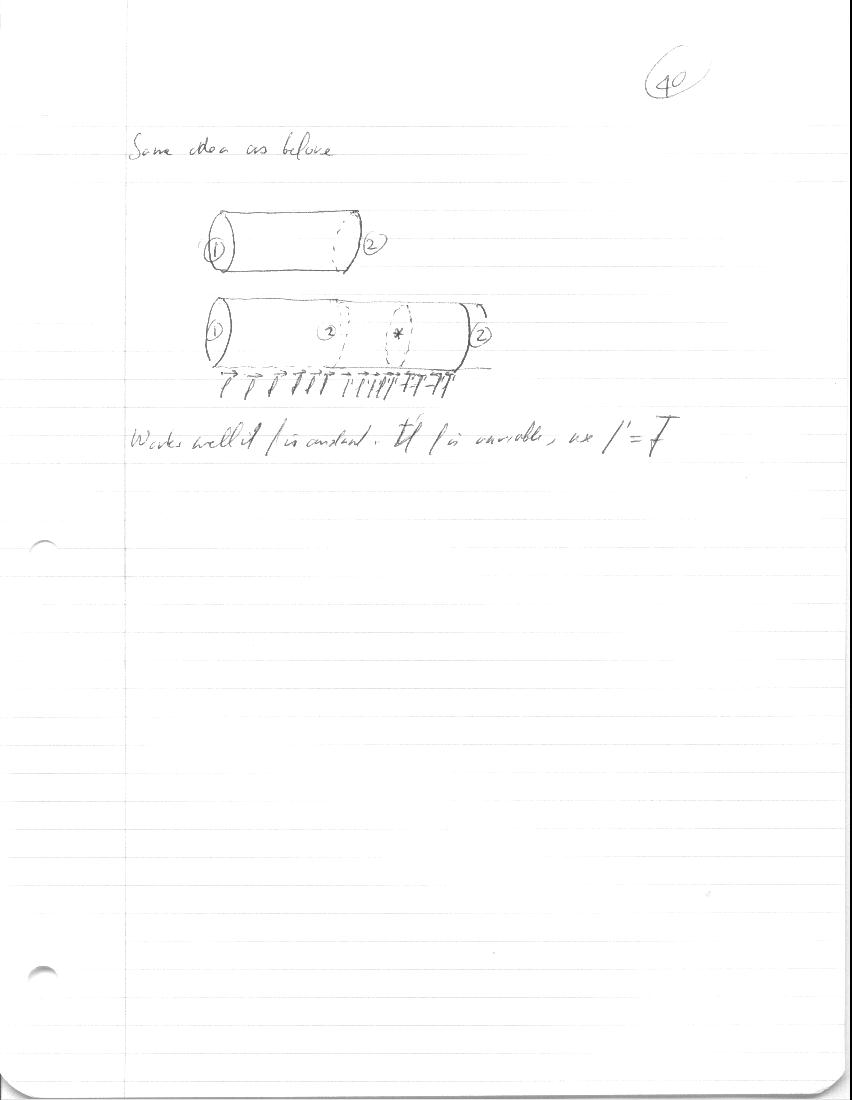 40
Same idea as before
① ②
① ② * ②
Works well if f is constant. If f is variable, use f' =